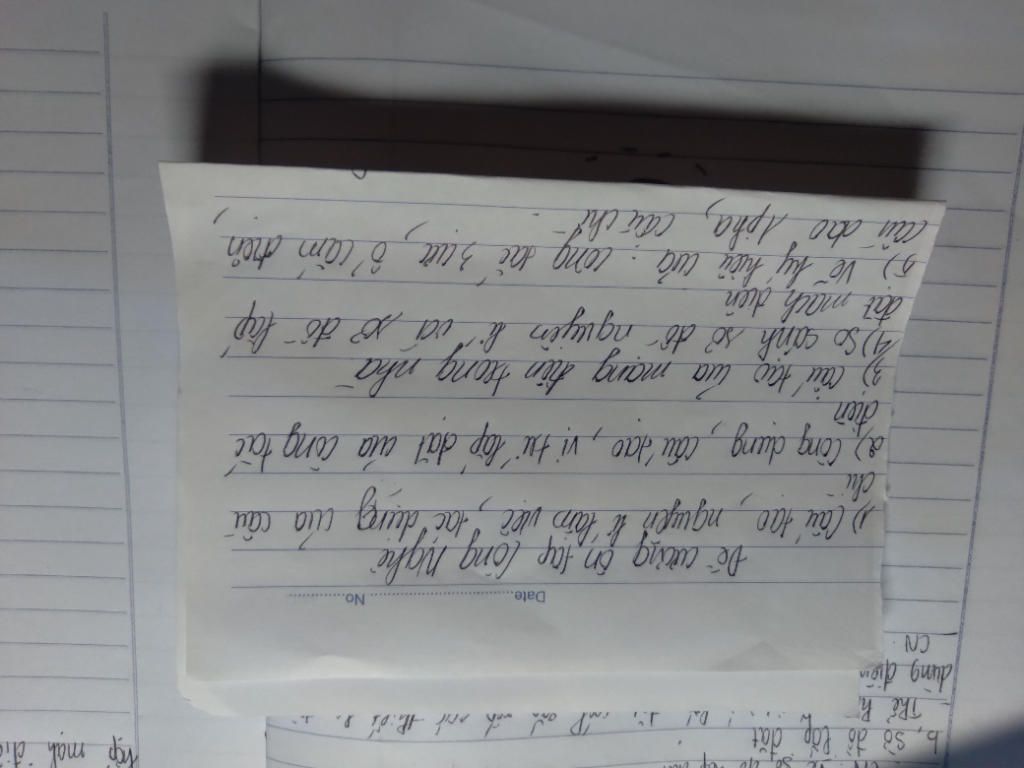 Date No
Đề cương ôn tập Công Nghệ
1) Cấu tạo, nguyên lí làm việc, tác dụng của cầu
chì
2) Công dụng, cấu tạo, vị trí lắp đặt của công tắc
điện
3) Cấu tạo của mạng điện trong nhà
4) So sánh sơ đồ nguyên lí và sơ đồ lắp
đặt mạch điện
5) Vẽ ký hiệu của: công tắc 3 cực, ổ cắm điện,
cầu dao 1 pha, cầu chì
b, Sơ đồ lắp đặt
dùng điện
CN
lắp mạch